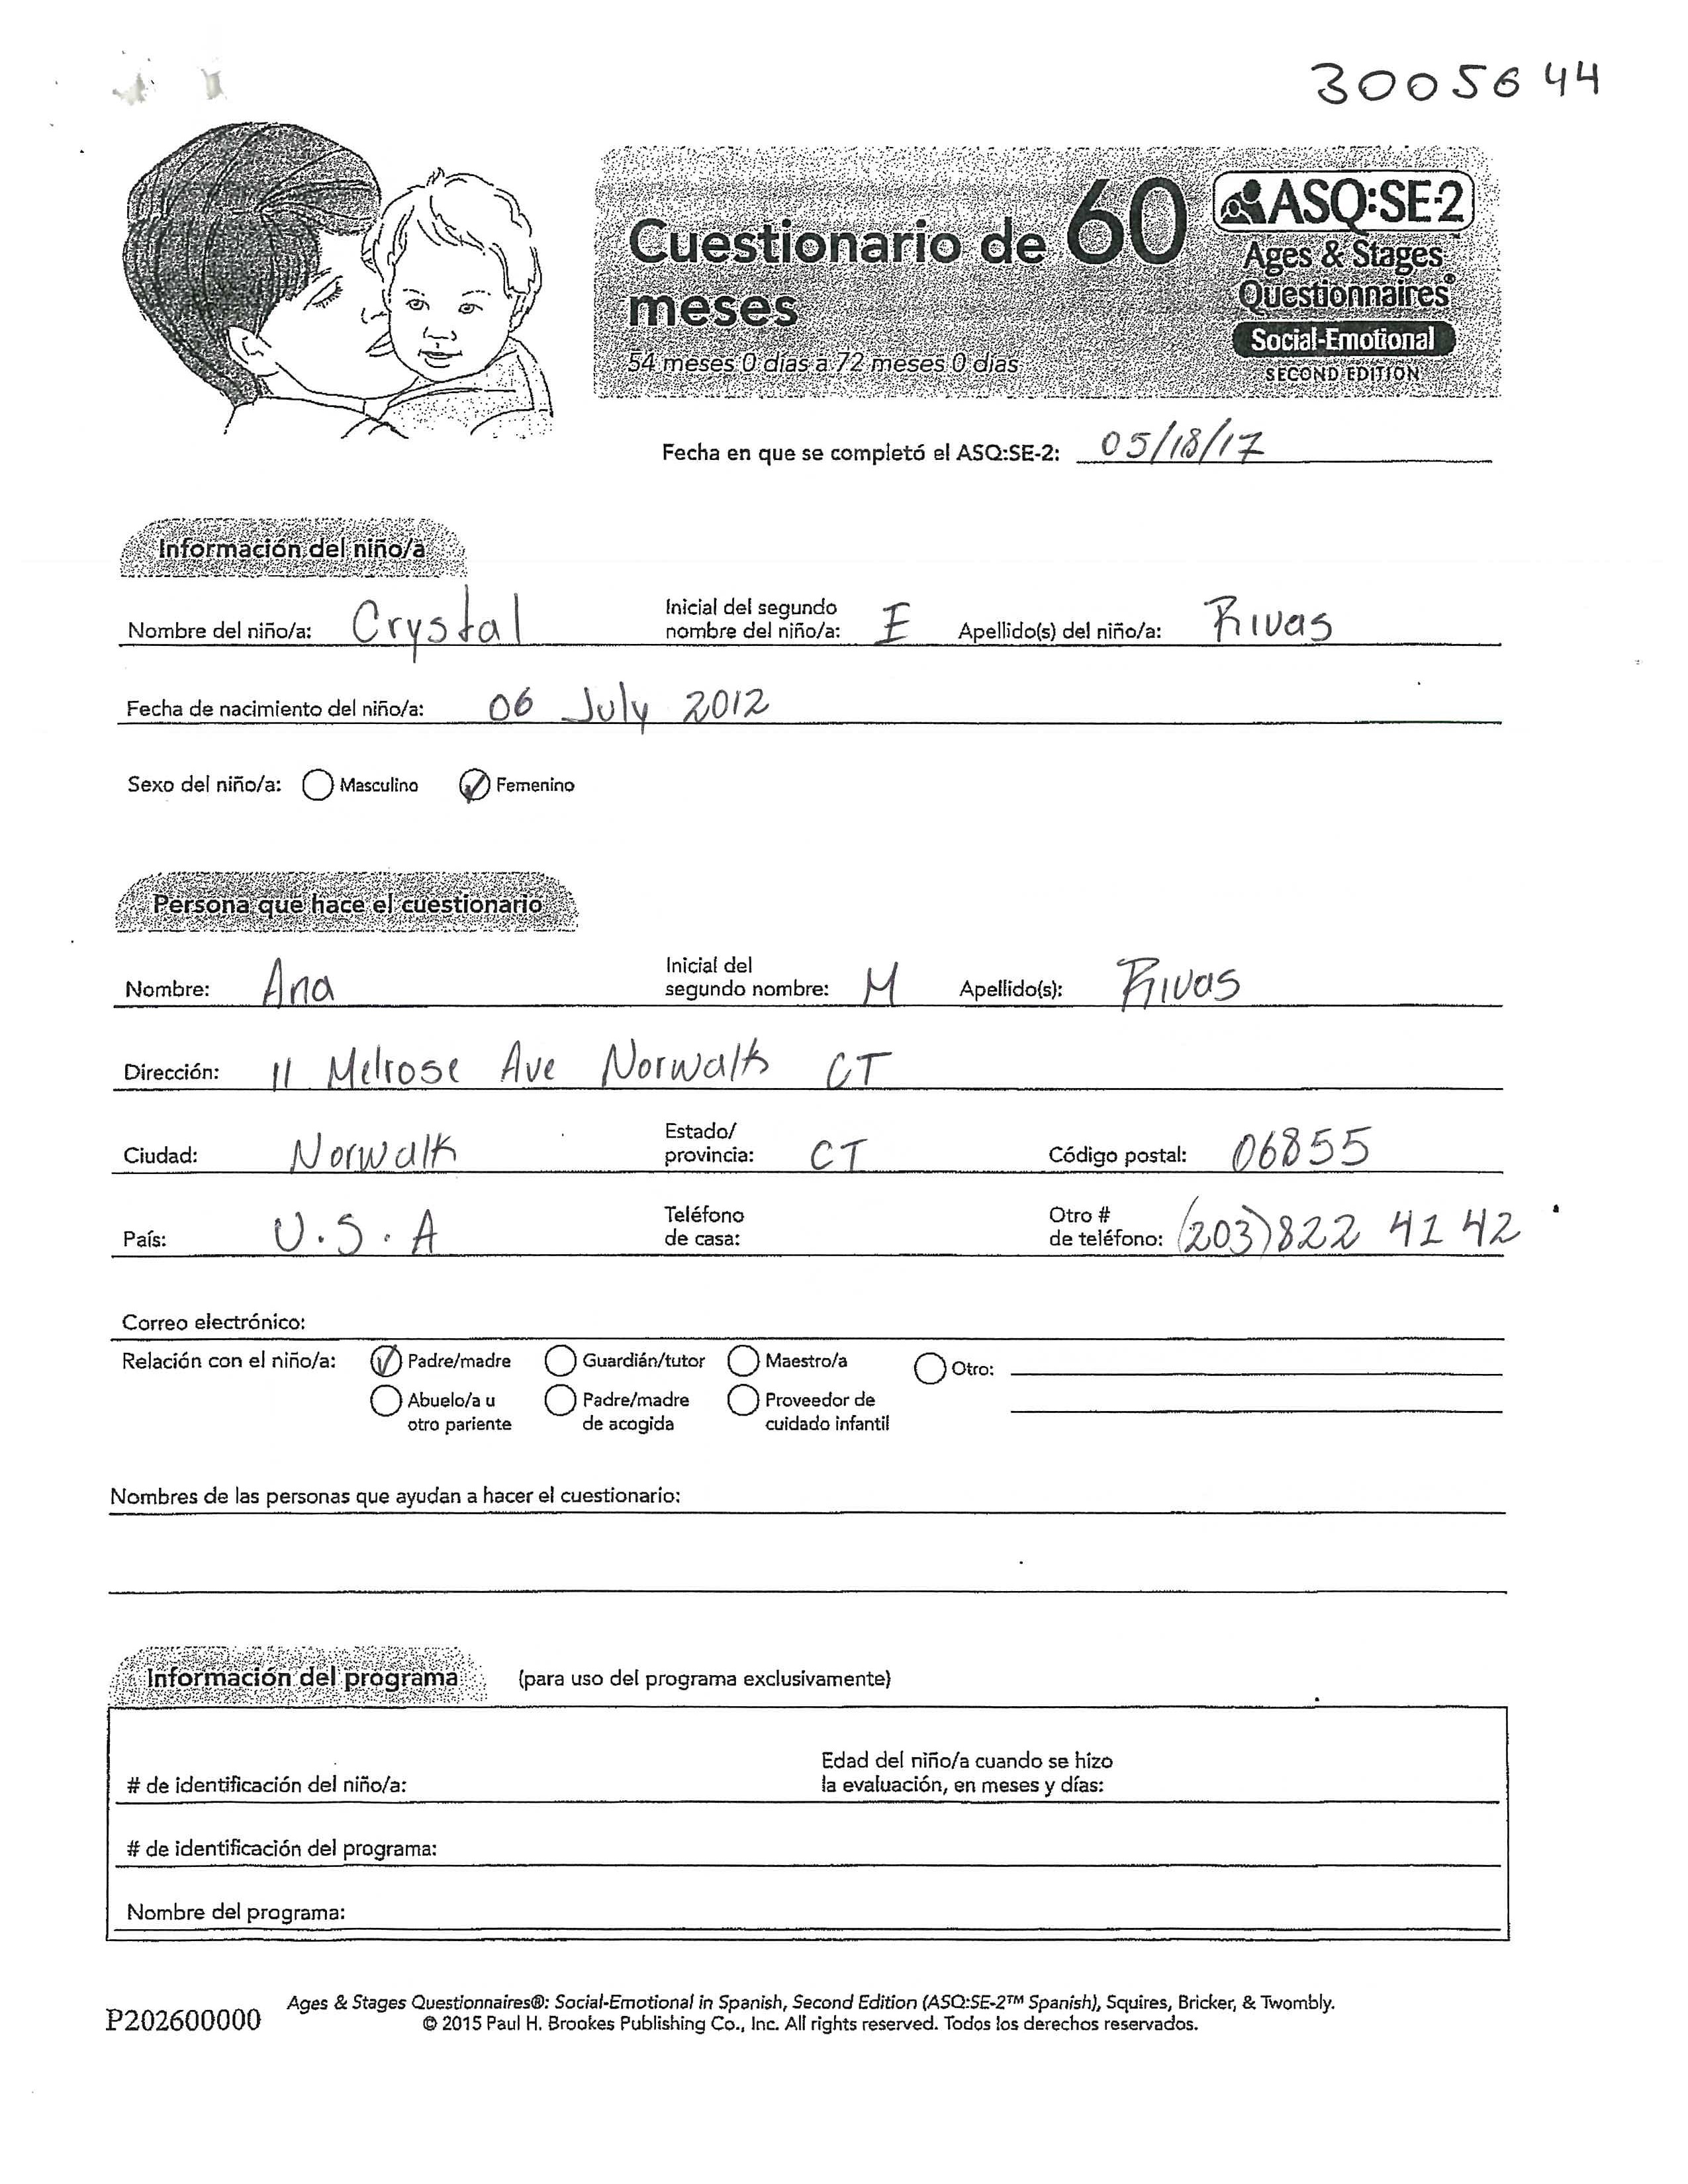 3005644
Cuestionario de 60
meses
54 meses 0 días a 72 meses 0 días
ASQ:SE-2
Ages & Stages
Questionnaires®
Social-Emotional
SECOND EDITION
Fecha en que se completó el ASQ:SE-2: 05/18/17
Información del niño/a
Nombre del niño/a: Crystal Inicial del segundo nombre del niño/a: E Apellido(s) del niño/a: Rivas
Fecha de nacimiento del niño/a: 06 July 2012
Sexo del niño/a: Masculino Femenino
Persona que hace el cuestionario
Nombre: Ana Inicial del segundo nombre: M Apellido(s): Rivas
Dirección: 11 Melrose Ave Norwalk CT
Ciudad: Norwalk Estado/provincia: CT Código postal: 06855
País: U.S.A Teléfono de casa: Otro # de teléfono: (203) 822 41 42
Correo electrónico:
Relación con el niño/a: Padre/madre Guardián/tutor Maestro/a Otro:
Abuelo/a u otro pariente Padre/madre de acogida Proveedor de cuidado infantil
Nombres de las personas que ayudan a hacer el cuestionario:
Información del programa (para uso del programa exclusivamente)
# de identificación del niño/a: Edad del niño/a cuando se hizo la evaluación, en meses y días:
# de identificación del programa:
Nombre del programa:
P202600000
Ages & Stages Questionnaires®: Social-Emotional in Spanish, Second Edition (ASQ:SE-2™ Spanish), Squires, Bricker, & Twombly.
© 2015 Paul H. Brookes Publishing Co., Inc. All rights reserved. Todos los derechos reservados.